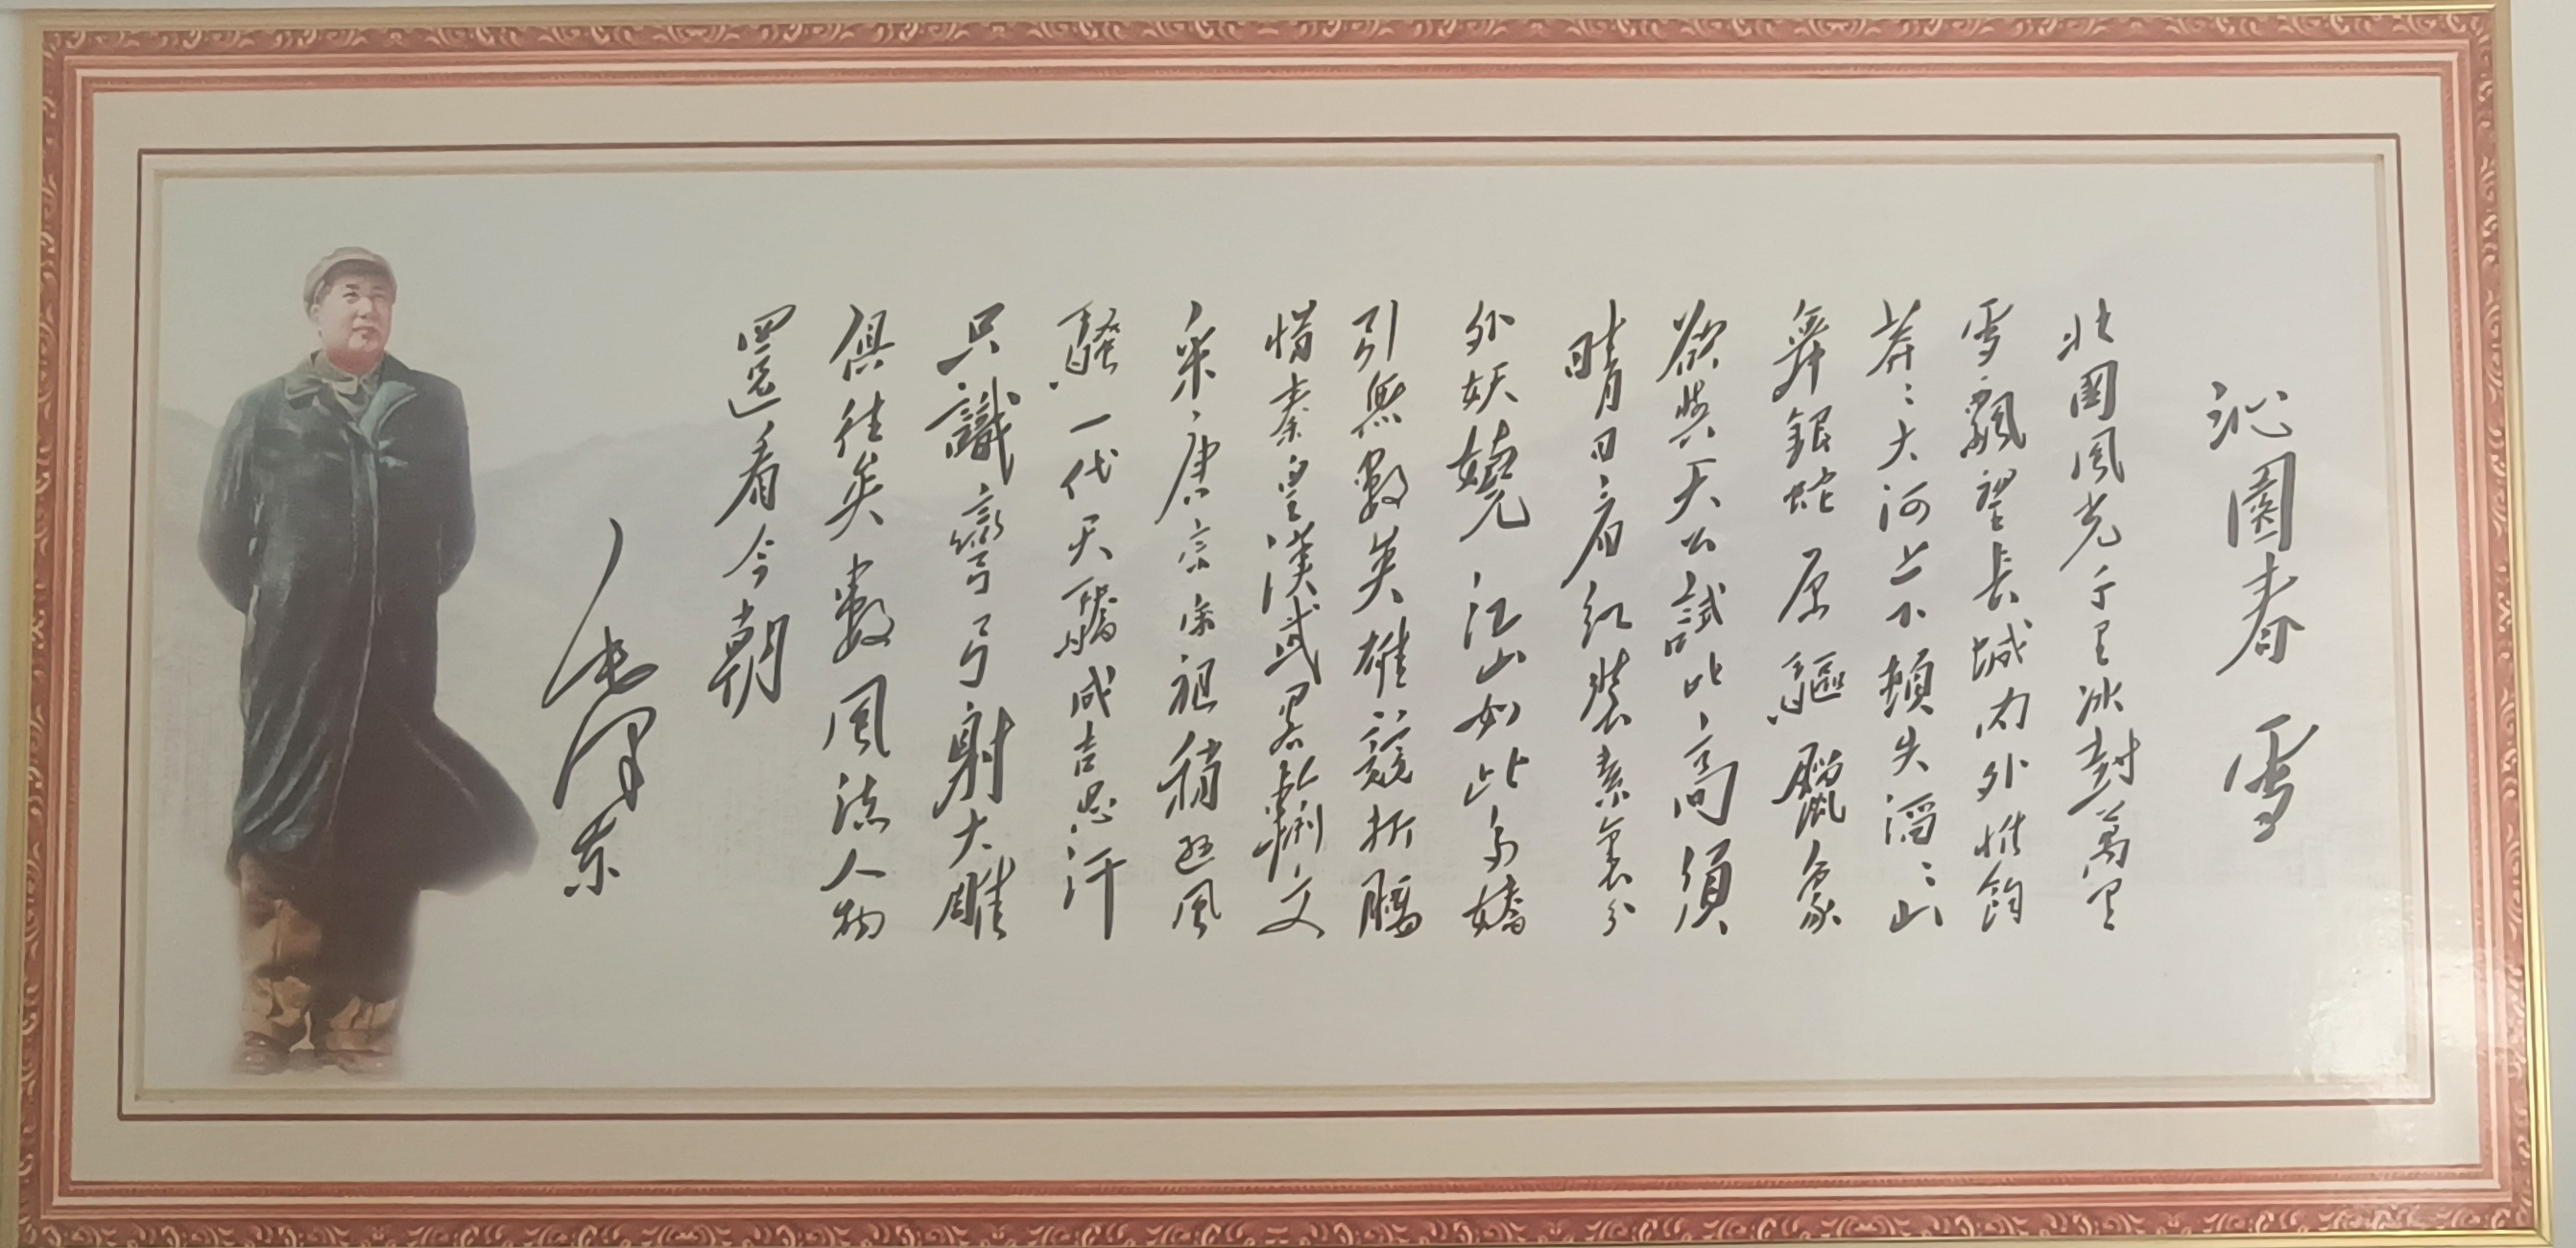 沁園春 雪
北國風光千里冰封萬里
雪飄望長城內外惟餘
莽〻大河上下頓失滔〻山
舞銀蛇原驅臘象
欲與天公試比高須
晴日看紅裝素裹分
外妖嬈江山如此多嬌
引無數英雄競折腰
惜秦皇漢武畧輸文
采唐宗宋祖稍遜風
騷一代天驕成吉思汗
只識彎弓射大雕
俱往矣數風流人物
還看今朝
毛澤東